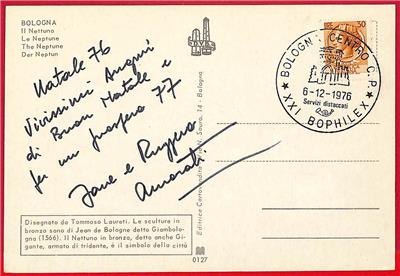 BOLOGNA
Il Nettuno
Le Neptune
The Neptune
Der Neptun
30
BOLOGNA CENTRO C.P.
6-12-1976
Servizi distaccati
XXI BOPHILEX
Natale 76
Vivissimi Auguri
di Buon Natale e
per un prospero 77
Jane e Ruggero
Amorati
Editrice Cartovendita N. Sauro, 14 - Bologna
Disegnato da Tommaso Laureti. Le sculture in
bronzo sono di Jean de Bologne detto Giambolo-
gna (1566). Il Nettuno in bronzo, detto anche Gi-
gante, armato di tridente, è il simbolo della città
0127